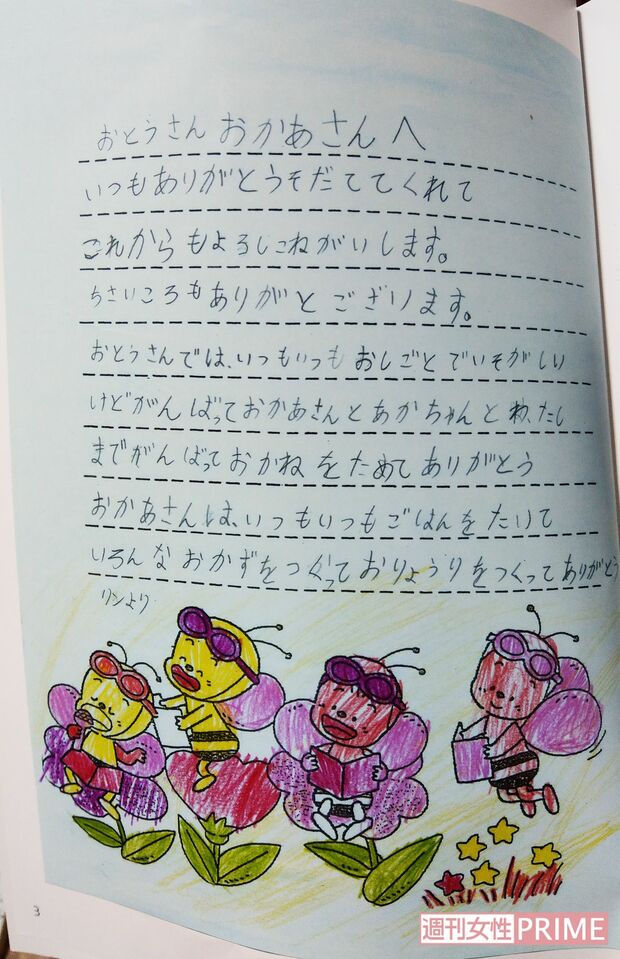 おとうさん おかあさんへ
いつもありがとうそだててくれて
これからもよろしこねがいします。
ちさいころもありがとございます。
おとうさんでは、いつもいつも おしごと でいそがしい
けどがんばっておかあさんとあかちゃんとわたし
までがんばっておかねをためてありがとう
おかあさんは、いつもいつもごはんをたいて
いろんなおかずをつくっておりょうりをつくってありがとう
リンより
3
週刊女性PRIME